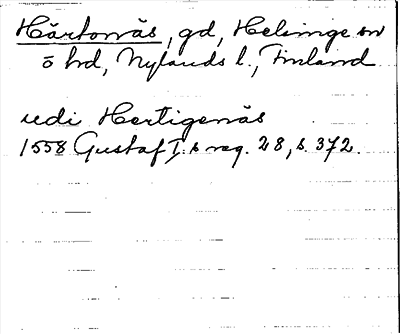 Härtonäs, gd, Helsinge sn
ö hd, Nylands l., Finland
uedi Hertigenäs
1558 Gustaf I:s reg. 28, s. 372.